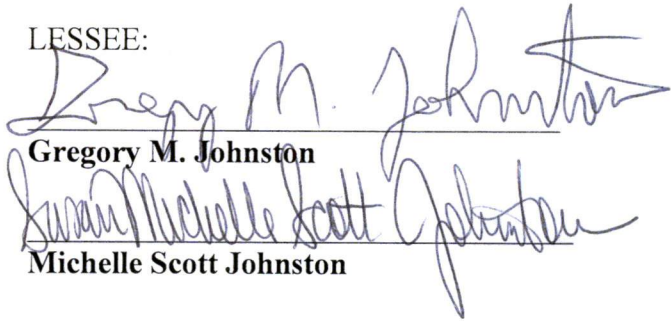 LESSEE:
Gregory M. Johnston
Gregory M. Johnston
Susan Michelle Scott Johnston
Michelle Scott Johnston